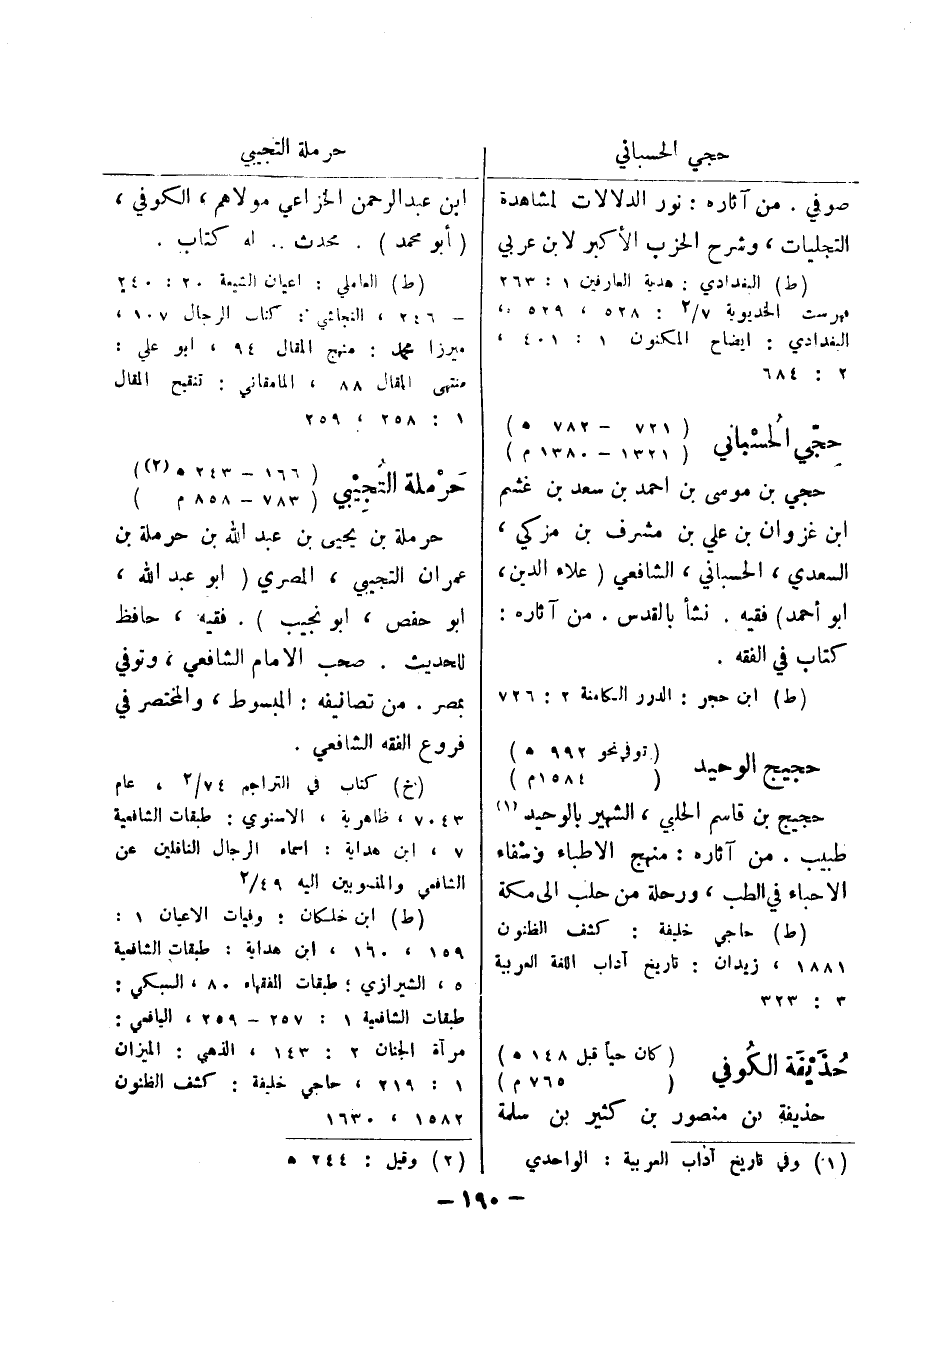 حجي الحسباني
صوفي . من آثاره : نور الدلالات لمشاهدة
التجليات ، وشرح الحزب الأكبر لابن عربي
(ط) البغدادي : هدية العارفين ١ : ٢٦٣
فهرست الخديوية ٢/٧ : ٥٢٨ ، ٥٢٩ ،
البغدادي : ايضاح المكنون ١ : ٤٠١ ،
٢ : ٦٨٤
حجّي الحُسْباني
( ٧٢١ – ٧٨٢ ه )
( ١٣٢١ – ١٣٨٠ م )
حجي بن موسى بن احمد بن سعد بن غشم
ابن غزوان بن علي بن مشرف بن مزكي ،
السعدي ، الحسباني ، الشافعي ( علاء الدين ،
ابو أحمد) فقيه . نشأ بالقدس . من آثاره :
كتاب في الفقه .
(ط) ابن حجر : الدرر الكامنة ٢ : ٧٢٦
حجيج الوحيد
( توفي نحو ٩٩٢ ه )
( ١٥٨٤ م )
حجيج بن قاسم الحلبي ، الشهير بالوحيد (١)
طبيب . من آثاره : منهج الاطباء وشفاء
الاحباء في الطب ، ورحلة من حلب الى مكة
(ط) حاجي خليفة : كشف الظنون
١٨٨١ ، زيدان : تاريخ آداب اللغة العربية
٣ : ٣٢٣
حُذَيْفَة الكُوفي
( كان حياً قبل ١٤٨ ه )
( ٧٦٥ م )
حذيفة بن منصور بن كثير بن سلمة
(١) وفي تاريخ آداب العربية : الواحدي
حرملة التجيبي
ابن عبدالرحمن الخزاعي مولاهم ، الكوفي ،
( أبو محمد ) . محدث .. له كتاب .
(ط) العاملي : اعيان الشيعة ٢٠ : ٢٤٠
– ٢٤٦ ، النجاشي : كتاب الرجال ١٠٧ ،
ميرزا محمد : منهج المقال ٩٤ ، ابو علي :
منتهى المقال ٨٨ ، المامقاني : تنقيح المقال
١ : ٢٥٨ ، ٢٥٩
حَرْملة التُجِيْبي
( ١٦٦ – ٢٤٣ ه (٢) )
( ٧٨٣ – ٨٥٨ م )
حرملة بن يحيى بن عبد الله بن حرملة بن
عمران التجيبي ، المصري ( ابو عبد الله ،
ابو حفص ، ابو نجيب ) . فقيه ، حافظ
للحديث . صحب الامام الشافعي ، وتوفي
بمصر . من تصانيفه : المبسوط ، والمختصر في
فروع الفقه الشافعي .
(خ) كتاب في التراجم ٢/٧٤ ، عام
٧٠٤٣ ، ظاهرية ، الاسنوي : طبقات الشافعية
٧ ، ابن هداية : اسماء الرجال الناقلين عن
الشافعي والمنسوبين اليه ٢/٤٩
(ط) ابن خلكان : وفيات الاعيان ١ :
١٥٩ ، ١٦٠ ، ابن هداية : طبقات الشافعية
٥ ، الشيرازي : طبقات الفقهاء ٨٠ ، السبكي :
طبقات الشافعية ١ : ٢٥٧ – ٢٥٩ ، اليافعي :
مرآة الجنان ٢ : ١٤٣ ، الذهبي : الميزان
١ : ٢١٩ ، حاجي خليفة : كشف الظنون
١٥٨٢ ، ١٦٣٠
(٢) وقيل : ٢٤٤ ه
– ١٩٠ –